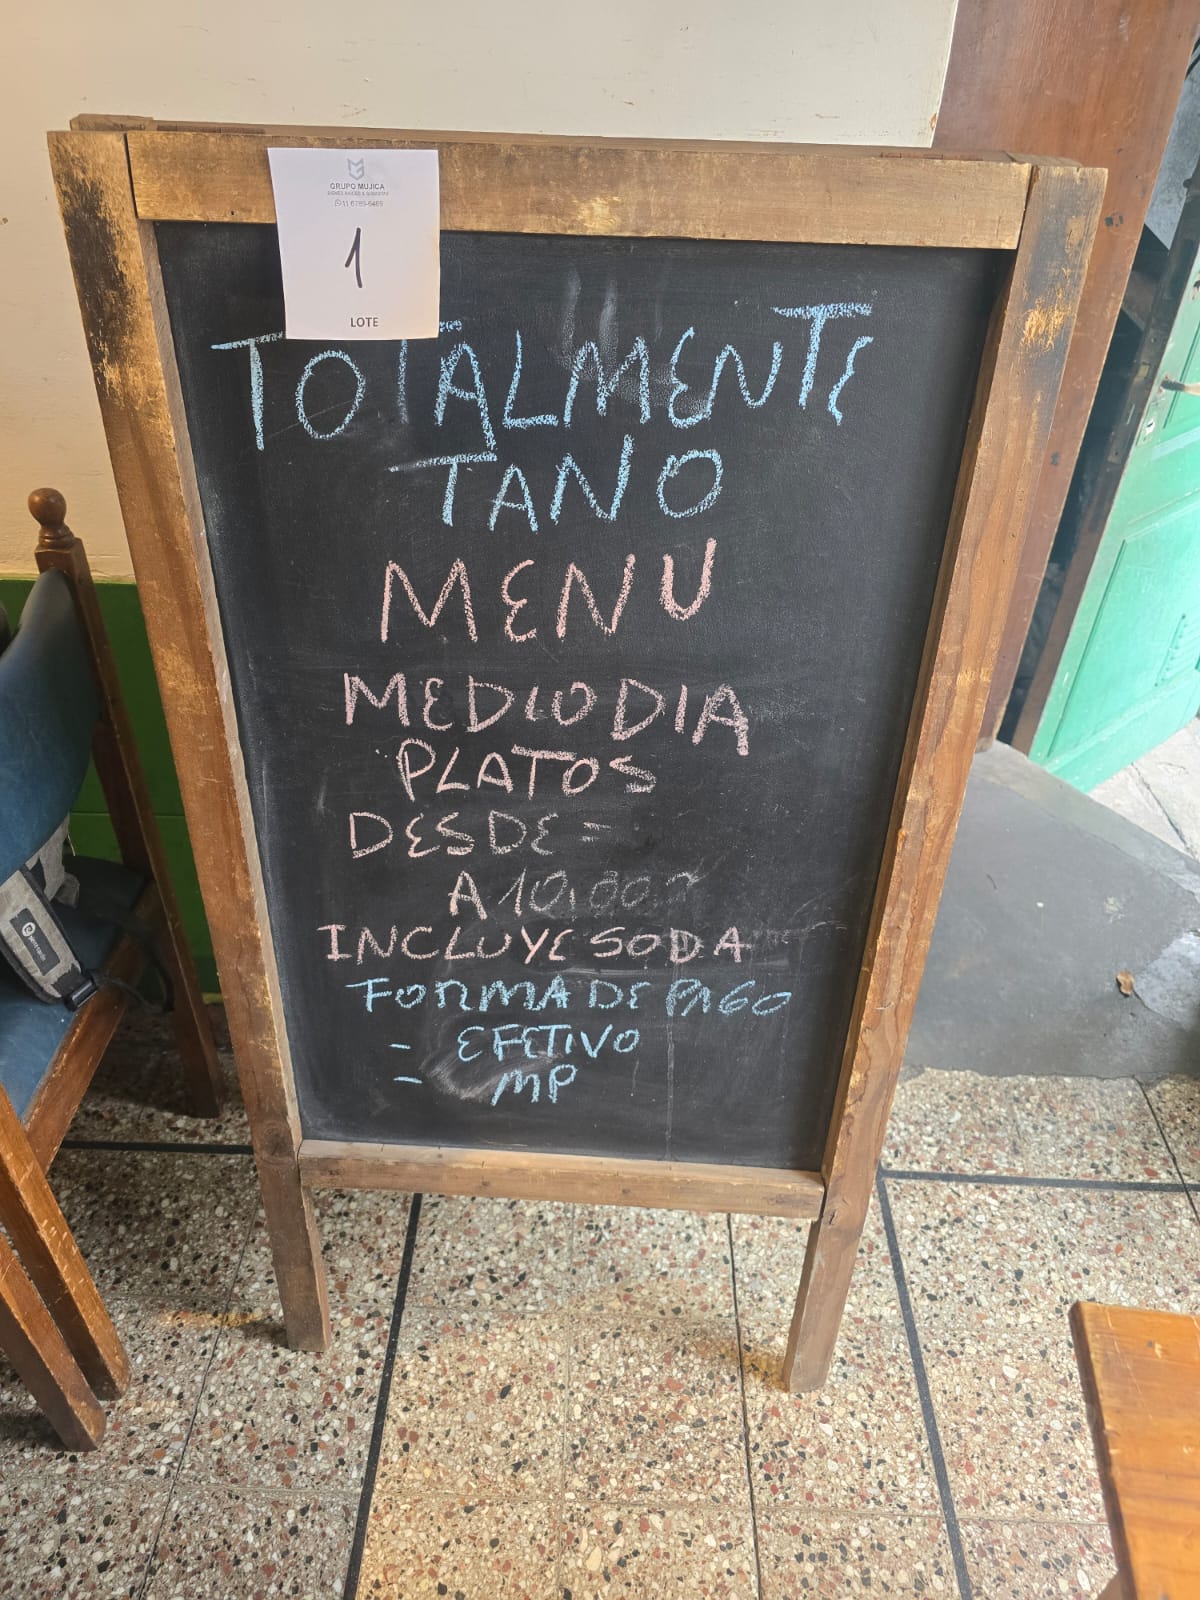 GRUPO MUJICA
BIENES RAICES & SUBASTAS
11 6789-6469
1
LOTE
TOTALMENTE
TANO
MENU
MEDIODIA
PLATOS
DESDE =
A 10.000
INCLUYE SODA
FORMA DE PAGO
= EFETIVO
= MP